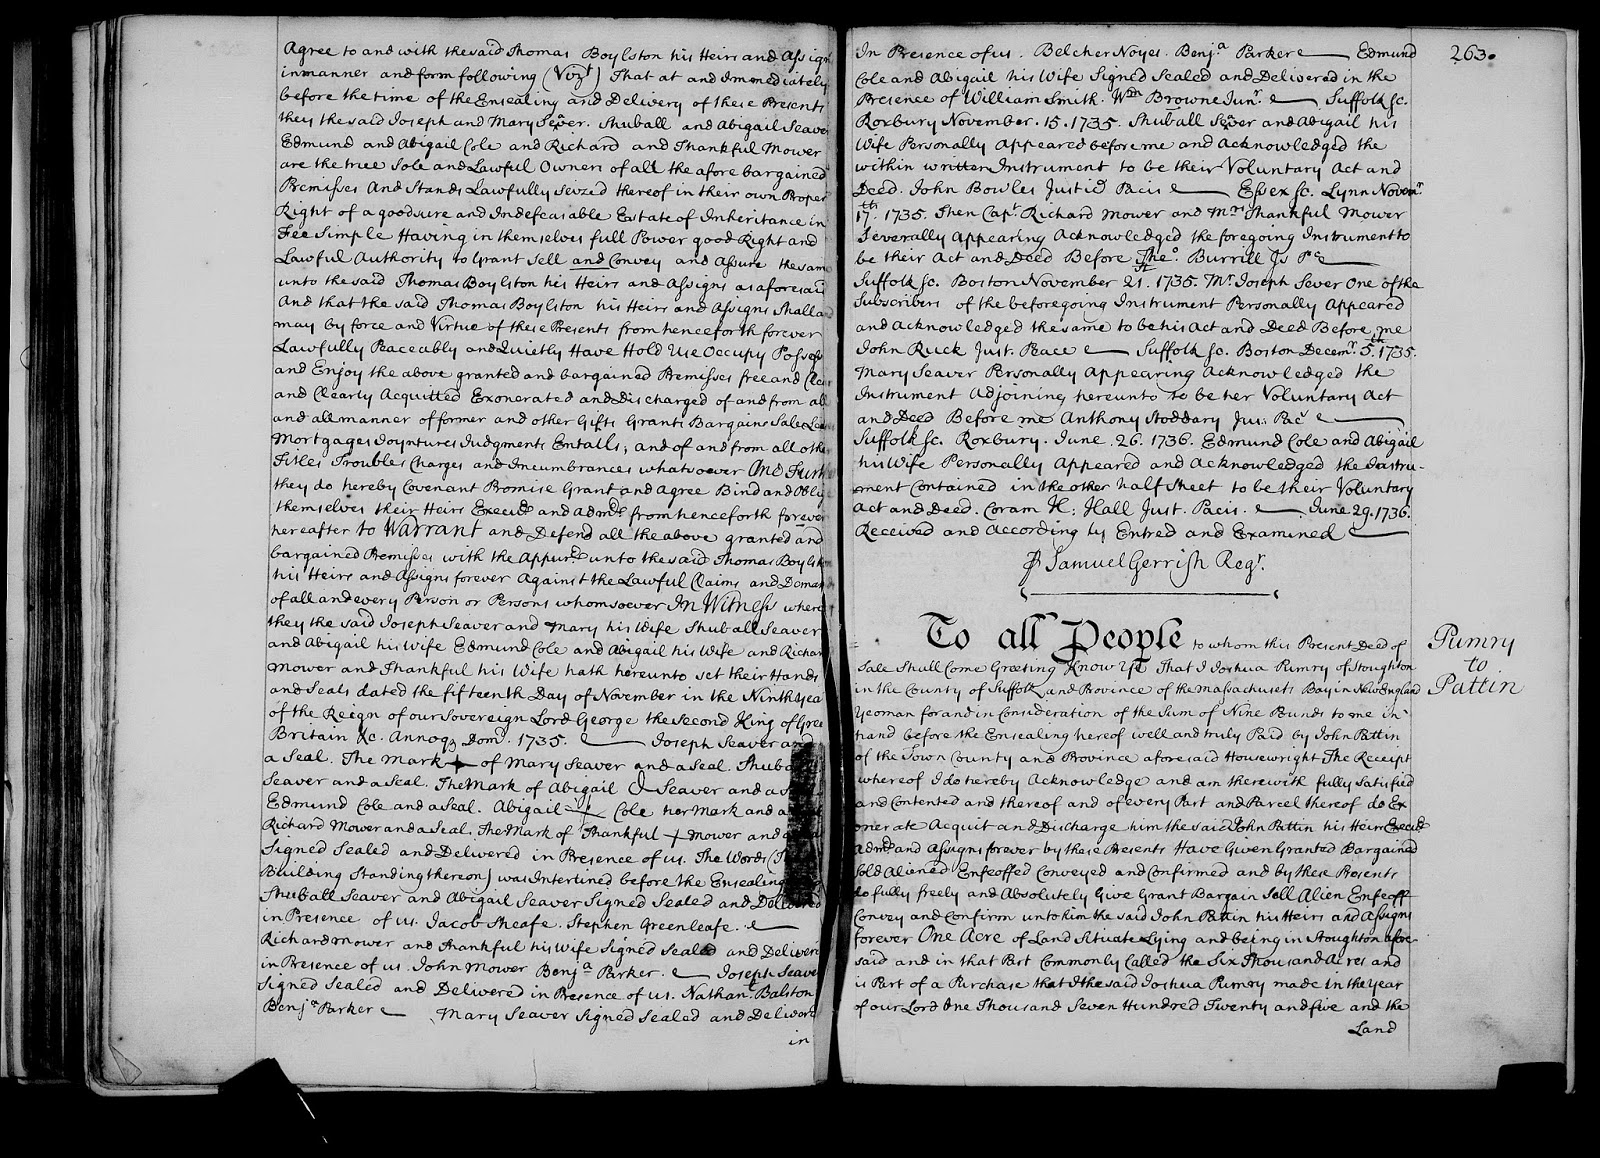 Agree to and with the said Thomas Boylston his Heirs and Assigns
in manner and form following (Vizt) That at and Immediately
before the time of the Ensealing and Delivery of these Presents
they the said Joseph and Mary Seaver. Shuball and Abigail Seaver
Edmund and Abigail Cole and Richard and Thankful Mower
are the true Sole and Lawful Owners of all the afore bargained
Premisses And Stands Lawfully Seized thereof in their own Proper
Right of a good sure and Indefeasable Estate of Inheritance in
Fee Simple Having in themselves full Power good Right and
Lawful Authority to Grant Sell and Convey and Assure the same
unto the said Thomas Boylston his Heirs and Assigns as aforesaid
And that the said Thomas Boylston his Heirs and Assigns Shall and
may by force and Virtue of these Presents from henceforth forever
Lawfully Peaceably and Quietly Have Hold Use Occupy Possess
and Enjoy the above granted and bargained Premisses free and Clear
and Clearly Acquitted Exonerated and Discharged of and from all
and all manner of former and other Gifts Grants Bargains Sales
Mortgages Joyntures Judgments Entails, and of and from all other
Titles Troubles Charges and Incumbrances whatsoever And Furth
they do hereby Covenant Promise Grant and Agree Bind and Oblig
themselves their Heirs Execrs and Admrs from henceforth forever
hereafter to Warrant and Defend all the above granted and
bargained Premisses with the Appurces unto the said Thomas Boylston
his Heirs and Assigns forever Against the Lawful Claims and Deman
of all and every Person or Persons whomsoever In Witness where
they the said Joseph Seaver and Mary his Wife Shuball Seaver
and Abigail his Wife Edmund Cole and Abigail his Wife and Richar
Mower and Thankful his Wife hath hereunto set their Hands
and Seals dated the fifteenth Day of November in the Ninth Yea
of the Reign of our Sovereign Lord George the Second King of Grea
Britain &c. Annoq Dom. 1735. Joseph Seaver and
a Seal. The Mark + of Mary Seaver and a Seal. Shuba
Seaver and a Seal. The Mark of Abigail Seaver and a
Edmund Cole and a Seal. Abigail Cole her Mark and a
Richard Mower and a Seal. The Mark of Thankful + Mower and a
Signed Sealed and Delivered in Presence of us. The Words
Building Standing thereon) was Interlined before the Ensealing
Shuball Seaver and Abigail Seaver Signed Sealed and Delivered
in Presence of us. Jacob Sheafe. Stephen Greenleafe.
Richard Mower and Thankful his Wife Signed Sealed and Deliver
in Presence of us. John Mower Benja Parker. Joseph Seave
Signed Sealed and Delivered in Presence of us. Nathanl. Balston
Benja Parker Mary Seaver Signed Sealed and Deliver
in
263.
In Presence of us. Belcher Noyes. Benja Parker Edmund
Cole and Abigail his Wife Signed Sealed and Delivered in the
Presence of William Smith. Wm Browne Junr. Suffolk sc.
Roxbury November. 15. 1735. Shuball Sever and Abigail his
Wife Personally Appeared before me and Acknowledged the
within written Instrument to be their Voluntary Act and
Deed. John Bowles Justic Pacis Essex sc. Lynn Novemr
17th. 1735. Then Capt. Richard Mower and Mrs Thankful Mower
Severally Appearing Acknowledged the foregoing Instrument to
be their Act and Deed Before Theo. Burrill Js Pce
Suffolk sc. Boston November 21st. 1735. Mr. Joseph Sever One of the
Subscribers of the beforegoing Instrument Personally Appeared
and Acknowledged the same to be his Act and Deed Before me
John Ruck Just. Peace Suffolk sc. Boston Decemr. 5th. 1735.
Mary Seaver Personally Appearing Acknowledged the
Instrument Adjoining hereunto to be her Voluntary Act
and Deed Before me Anthony Stoddard Jus: Pac
Suffolk sc. Roxbury. June. 26. 1736. Edmund Cole and Abigail
his Wife Personally Appeared and Acknowledged the Instru-
ment Contained in the other half Sheet to be their Voluntary
Act and Deed. Coram H: Hall Just. Pacis. June 29. 1736.
Received and According ly Entred and Examined
P Samuel Gerrish Regr.
To all People to whom this Present Deed of
Sale Shall Come Greeting Know Ye That I Joshua Pumry of Stoughton
in the County of Suffolk and Province of the Massachusets Bay in New England
Yeoman for and in Consideration of the Sum of Nine Punds to me in
hand before the Ensealing hereof well and truly Paid by John Pattin
of the Town County and Province aforesaid Housewright The Receipt
whereof I do hereby Acknowledge and am therewith fully Satisfied
and Contented and thereof and of every Part and Parcel thereof do Ex
onerate Acquit and Discharge him the said John Pattin his Heirs Execrs
Admrs and Assigns forever by these Presents Have Given Granted Bargained
Sold Aliened Enfeoffed Conveyed and Confirmed and by these Presents
do fully freely and Absolutely Give Grant Bargain Sell Alien Enfeoff
Convey and Confirm unto him the said John Pattin his Heirs and Assigns
forever One Acre of Land Situate Lying and being in Stoughton afore
said and in that Part Commonly Called the Six Thousand Acres and
is Part of a Purchase that I the said Joshua Pumry made In the Year
of our Lord One Thousand Seven Hundred Twenty and five and the
Land
Pumry
to
Pattin